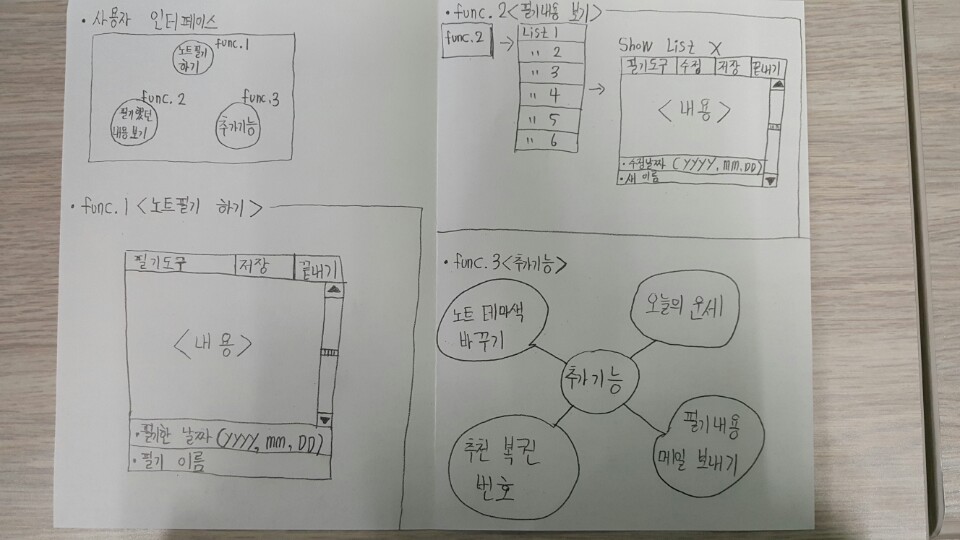 · 사용자 인터페이스
func.1
노트필기
하기
func. 2
필기했던
내용 보기
func.3
추가기능
· func.1 <노트필기 하기>
필기도구 저장 끝내기
<내용>
· 필기한 날짜 (YYYY, mm, DD)
· 필기 이름
· func. 2 <필기내용 보기>
func.2
List 1
" 2
" 3
" 4
" 5
" 6
Show List X
필기도구 수정 저장 끝내기
<내용>
· 수정날짜 (YYYY, mm, DD)
· 새 이름
· func. 3 <추가기능>
노트 테마색
바꾸기
오늘의 운세
추가기능
추천 복권
번호
필기내용
메일 보내기